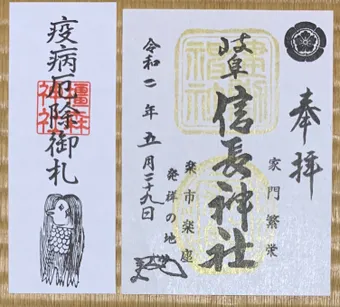 疫病厄除御札
奉拝
家門繁栄
岐阜信長神社
楽市楽座
発祥の地
令和二年五月二十九日